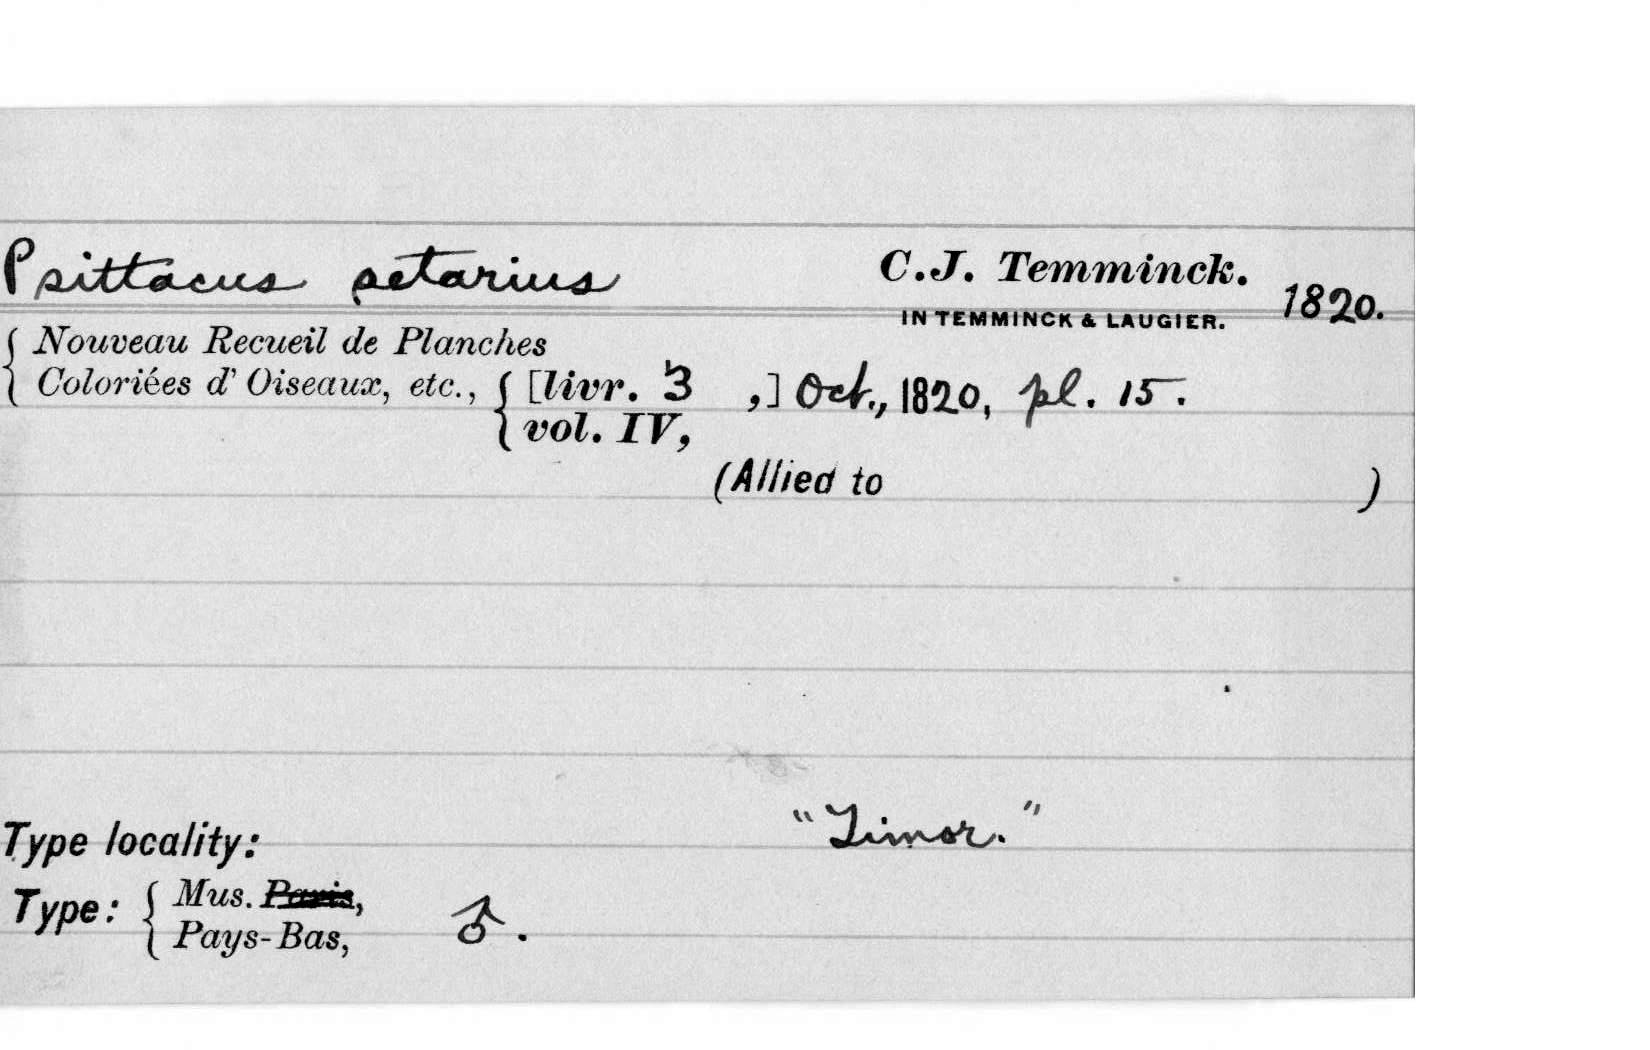 Psittacus setarius C.J. Temminck. 1820.
IN TEMMINCK & LAUGIER.
{ Nouveau Recueil de Planches
Coloriées d' Oiseaux, etc., { [livr. 3 ,] Oct., 1820, pl. 15.
vol. IV,
(Allied to )
Type locality: "Timor."
Type: { Mus. Paris,
Pays-Bas, ♂.